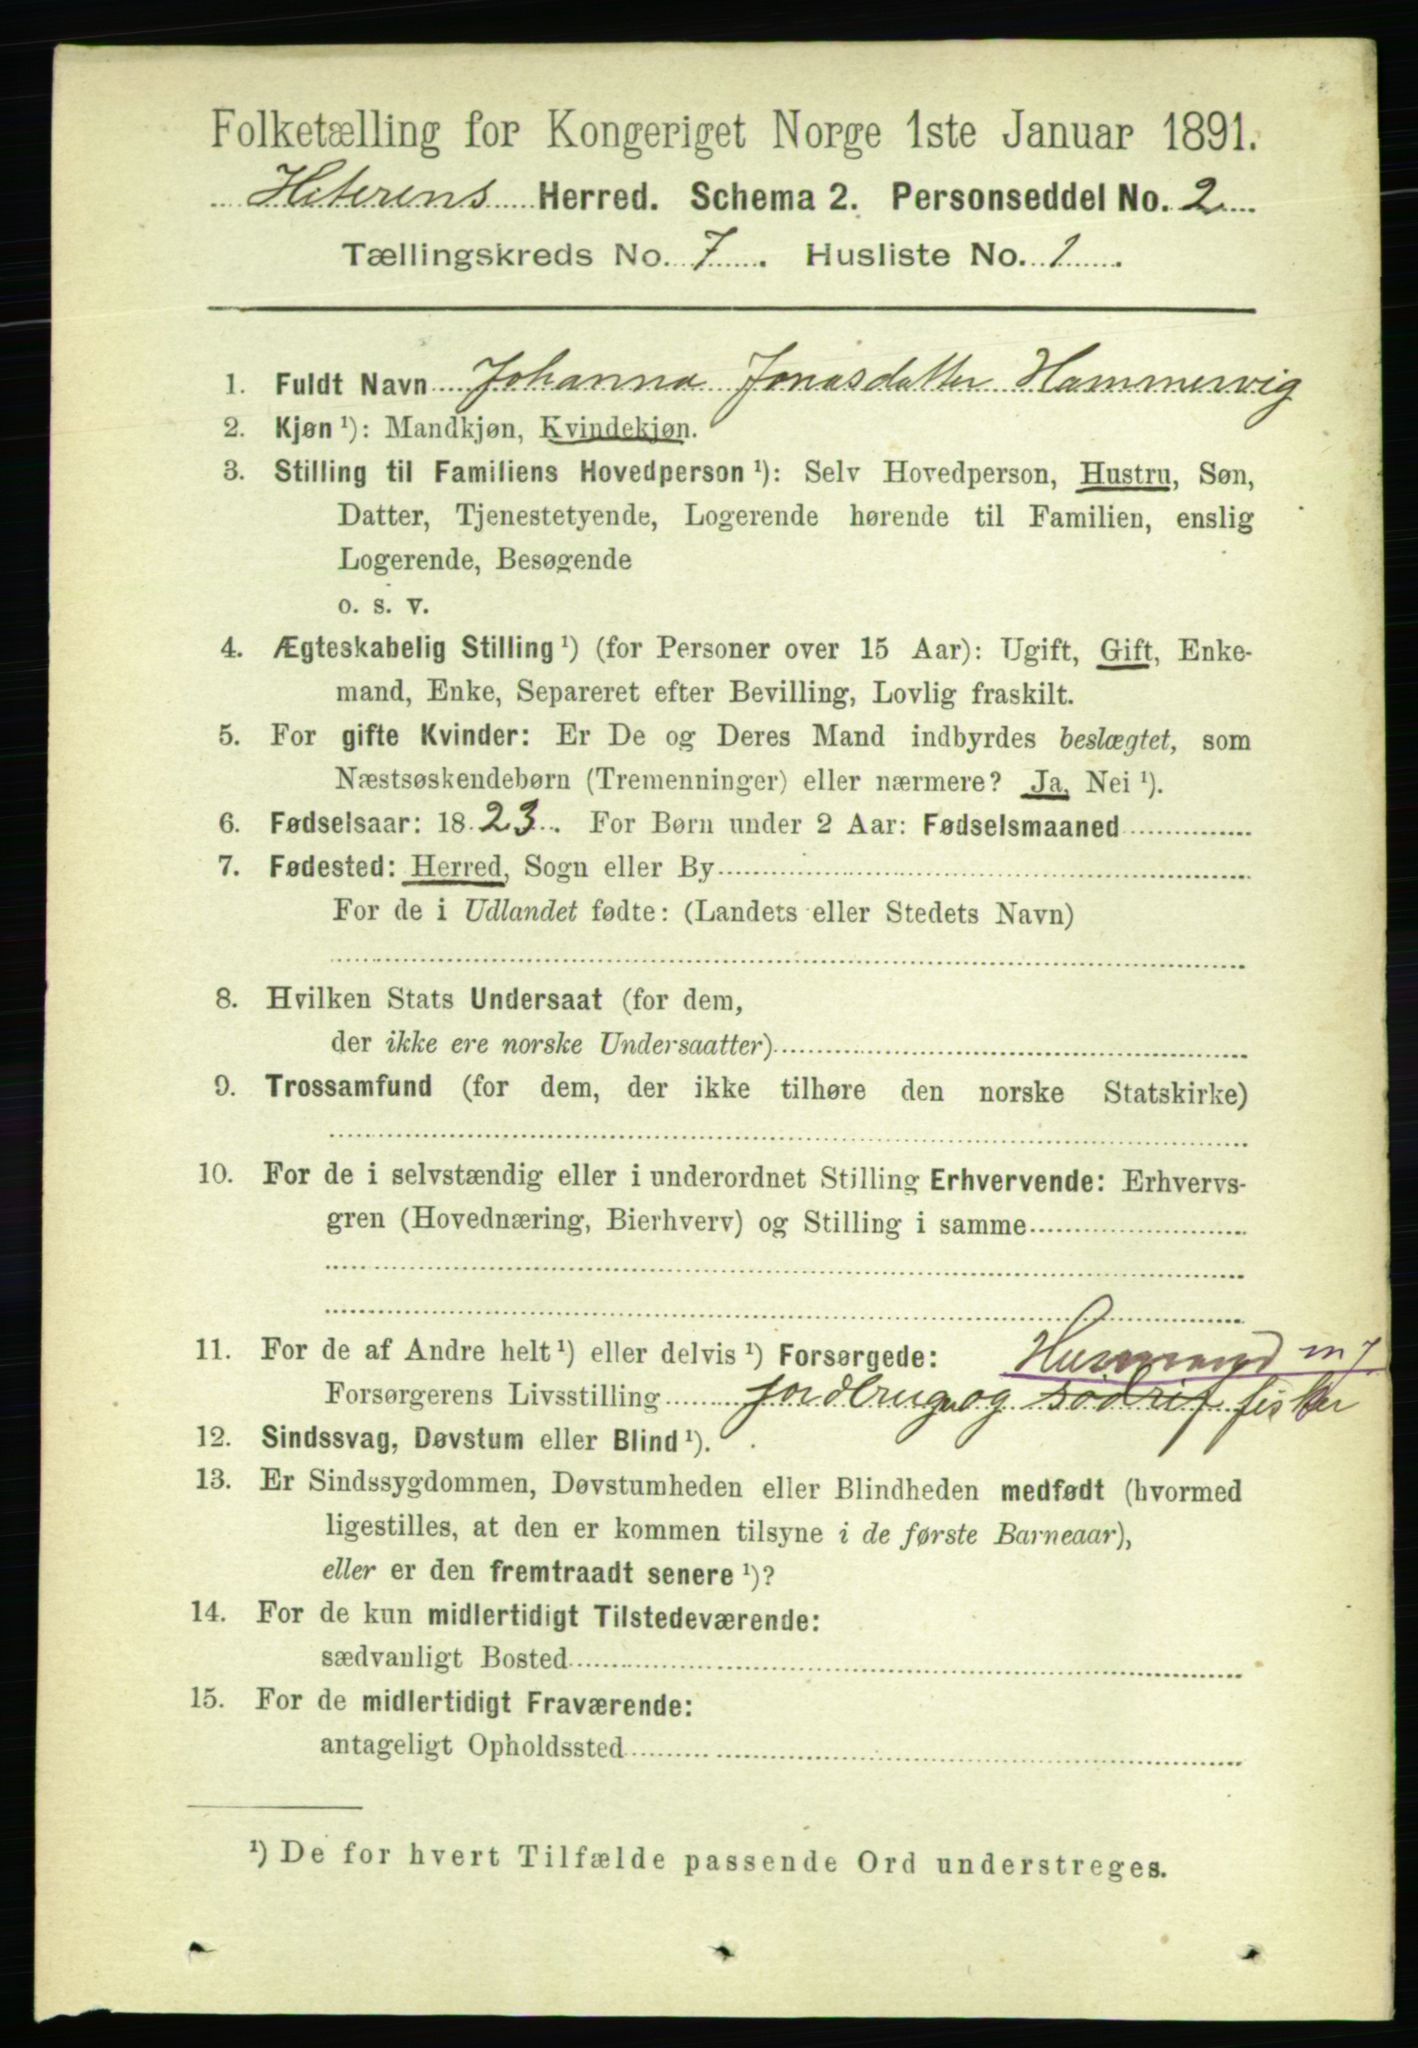 Folketælling for Kongeriget Norge 1ste Januar 1891.
Hiterens Herred. Schema 2. Personseddel No. 2
Tællingskreds No. 7. Husliste No. 1.
1. Fuldt Navn Johanna Jonasdatter Hammervig
2. Kjøn ¹): Mandkjøn, Kvindekjøn.
3. Stilling til Familiens Hovedperson ¹): Selv Hovedperson, Hustru, Søn,
Datter, Tjenestetyende, Logerende hørende til Familien, enslig
Logerende, Besøgende
o. s. v.
4. Ægteskabelig Stilling ¹) (for Personer over 15 Aar): Ugift, Gift, Enke-
mand, Enke, Separeret efter Bevilling, Lovlig fraskilt.
5. For gifte Kvinder: Er De og Deres Mand indbyrdes beslægtet, som
Næstsøskendebørn (Tremenninger) eller nærmere? Ja, Nei ¹).
6. Fødselsaar: 1823. For Børn under 2 Aar: Fødselsmaaned
7. Fødested: Herred, Sogn eller By
For de i Udlandet fødte: (Landets eller Stedets Navn)
8. Hvilken Stats Undersaat (for dem,
der ikke ere norske Undersaatter)
9. Trossamfund (for dem, der ikke tilhøre den norske Statskirke)
10. For de i selvstændig eller i underordnet Stilling Erhvervende: Erhvervs-
gren (Hovednæring, Bierhverv) og Stilling i samme
11. For de af Andre helt ¹) eller delvis ¹) Forsørgede: Husmand m j
Forsørgerens Livsstilling jordbrug og fisker
12. Sindssvag, Døvstum eller Blind ¹).
13. Er Sindssygdommen, Døvstumheden eller Blindheden medfødt (hvormed
ligestilles, at den er kommen tilsyne i de første Barneaar),
eller er den fremtraadt senere ¹)?
14. For de kun midlertidigt Tilstedeværende:
sædvanligt Bosted
15. For de midlertidigt Fraværende:
antageligt Opholdssted
¹) De for hvert Tilfælde passende Ord understreges.